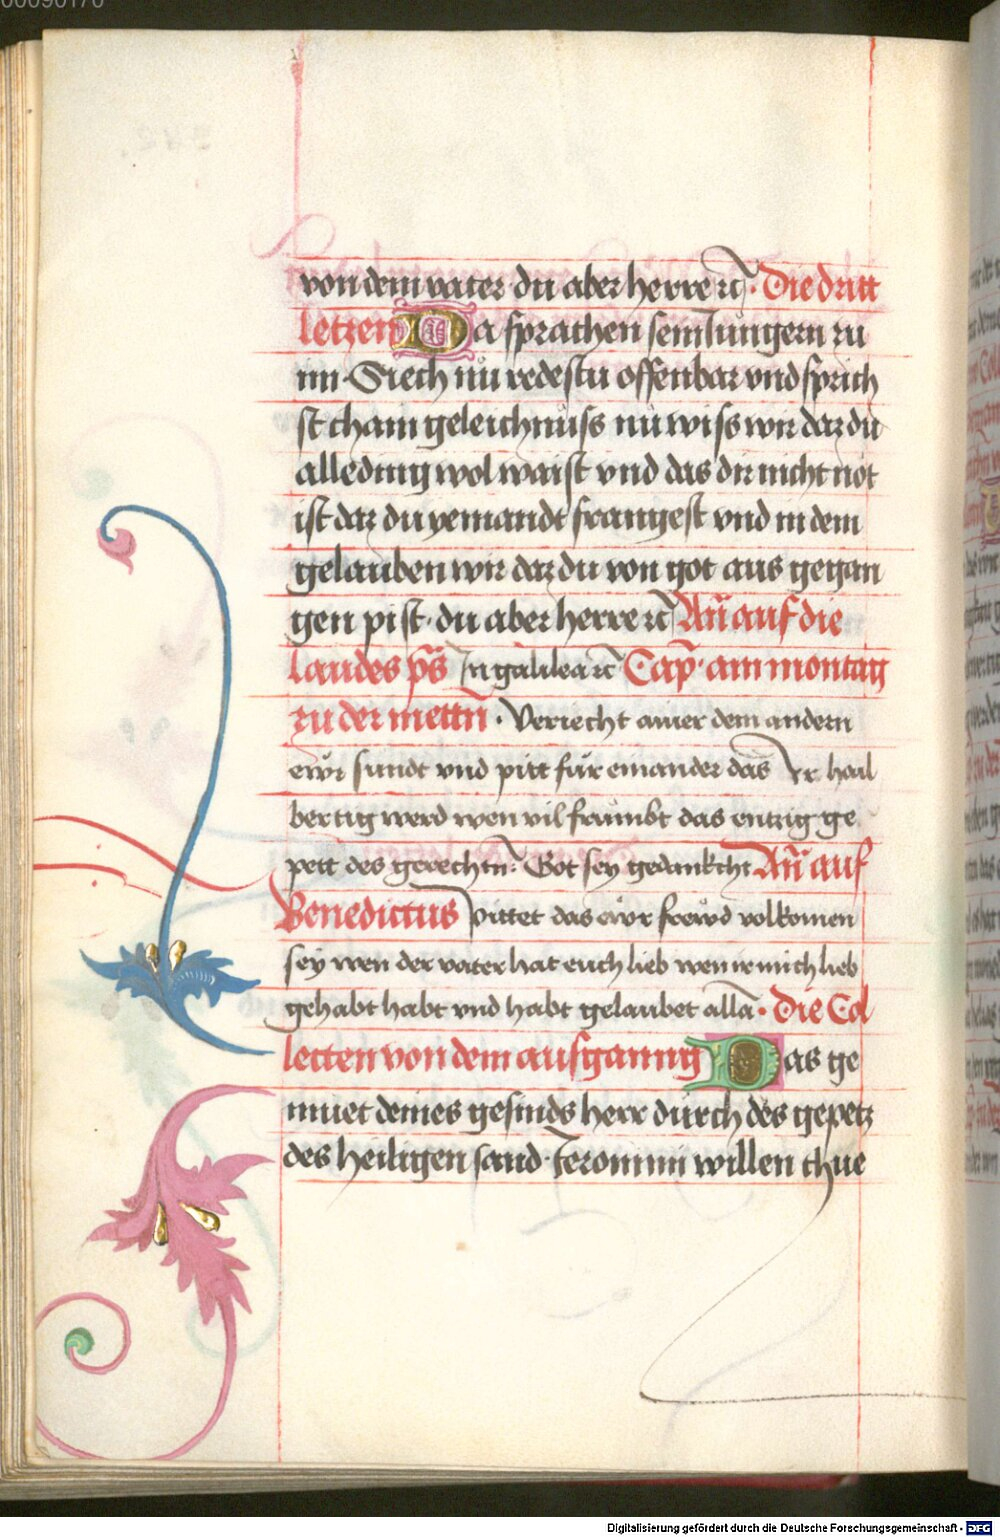 00090170
von dem vater du aber herre ꝛc̄ · Die dritt
letzen Da sprachen sein Jungern zu
im · Siech nu redestu offenbar vnd sprich
st chain geleichnuss nu wiss wir daz du
alleding wol waist vnd das dir nicht not
ist daz du yemandt frangest vnd in dem
gelauben wir daz du von got aus gegan
gen pist · du aber herre ꝛc̄ Añ auf die
laudes ps̄ In galilea ꝛc̄ Cap̄ · am montag
zu der mettn̄ · Veriecht ainer dem andern
ewr sundt vnd pitt für einander das Ir hail
bertig werd wen vil frumbt das enttzig ge
pett des gerechtn̄ : Got sey gedankcht Añ auf
Benedictus Pittet das ewr frewd volkomen
sey wen der vater hat euch lieb wen ir mich lieb
gehabt habt vnd habt gelaubet alla̅ · Die Col
letten von dem aufganng Das ge
muet deines gesinds herr durch des gepetz
des heiligen sand · Jeronimi willen thue
Digitalisierung gefördert durch die Deutsche Forschungsgemeinschaft - DFG